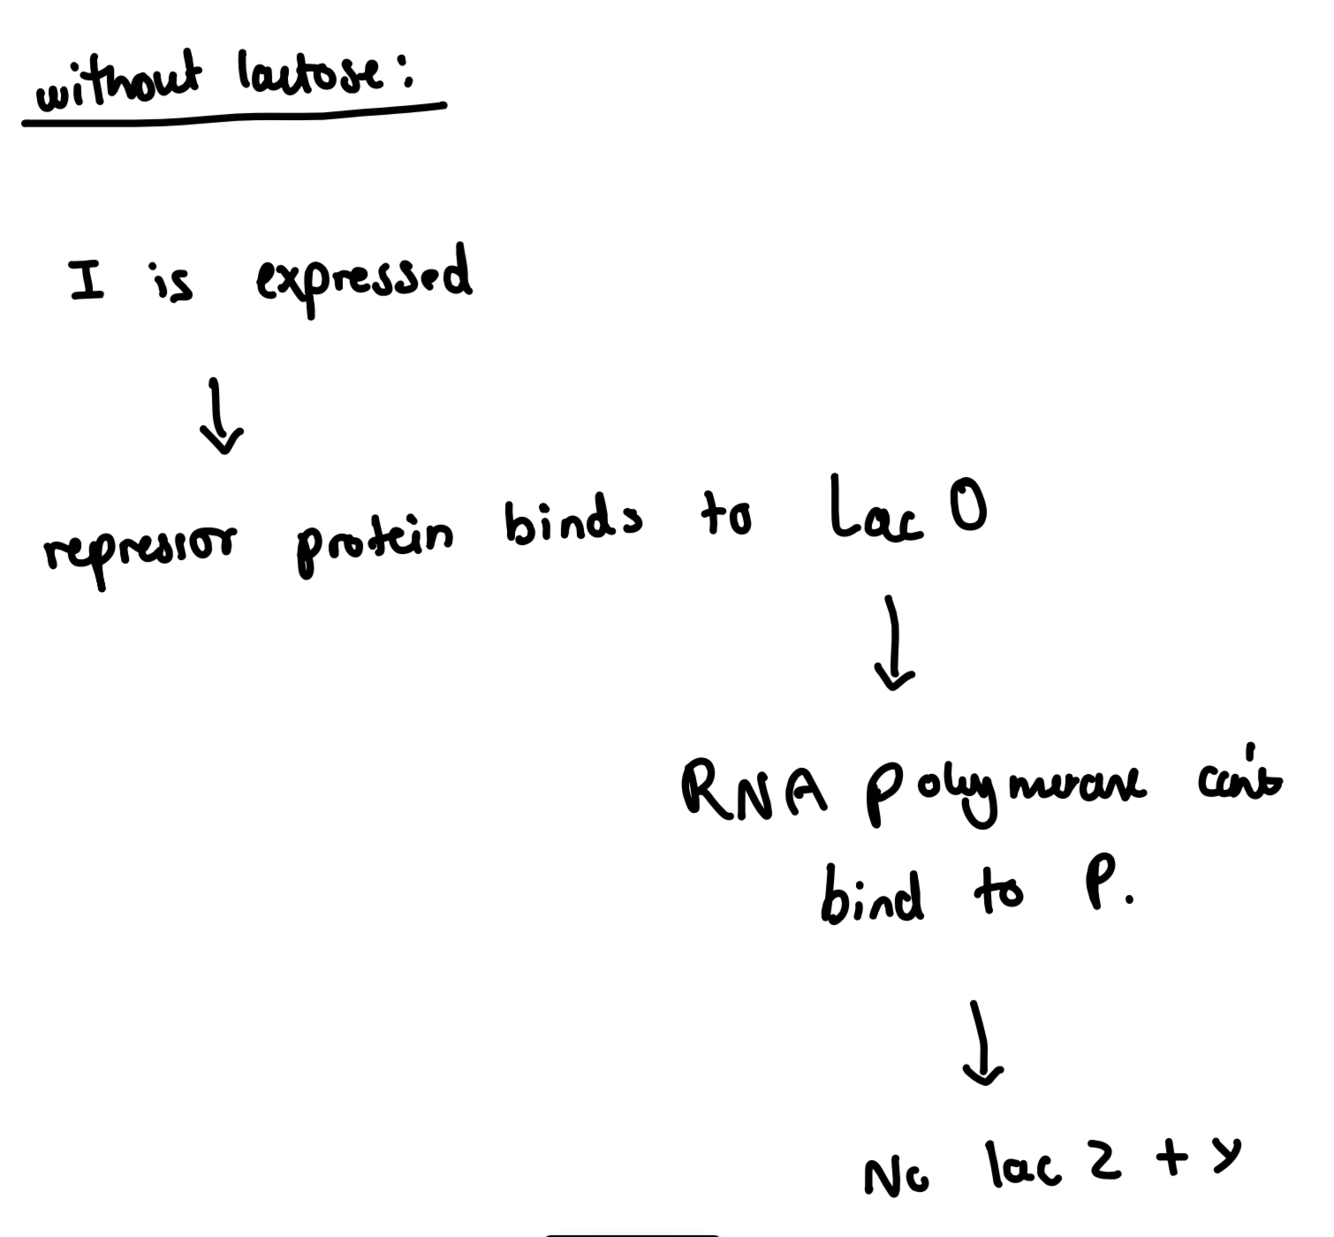 without lactose:
I is expressed
↓
repressor protein binds to Lac O
↓
RNA polymerase can't
bind to P.
↓
No lac Z + Y